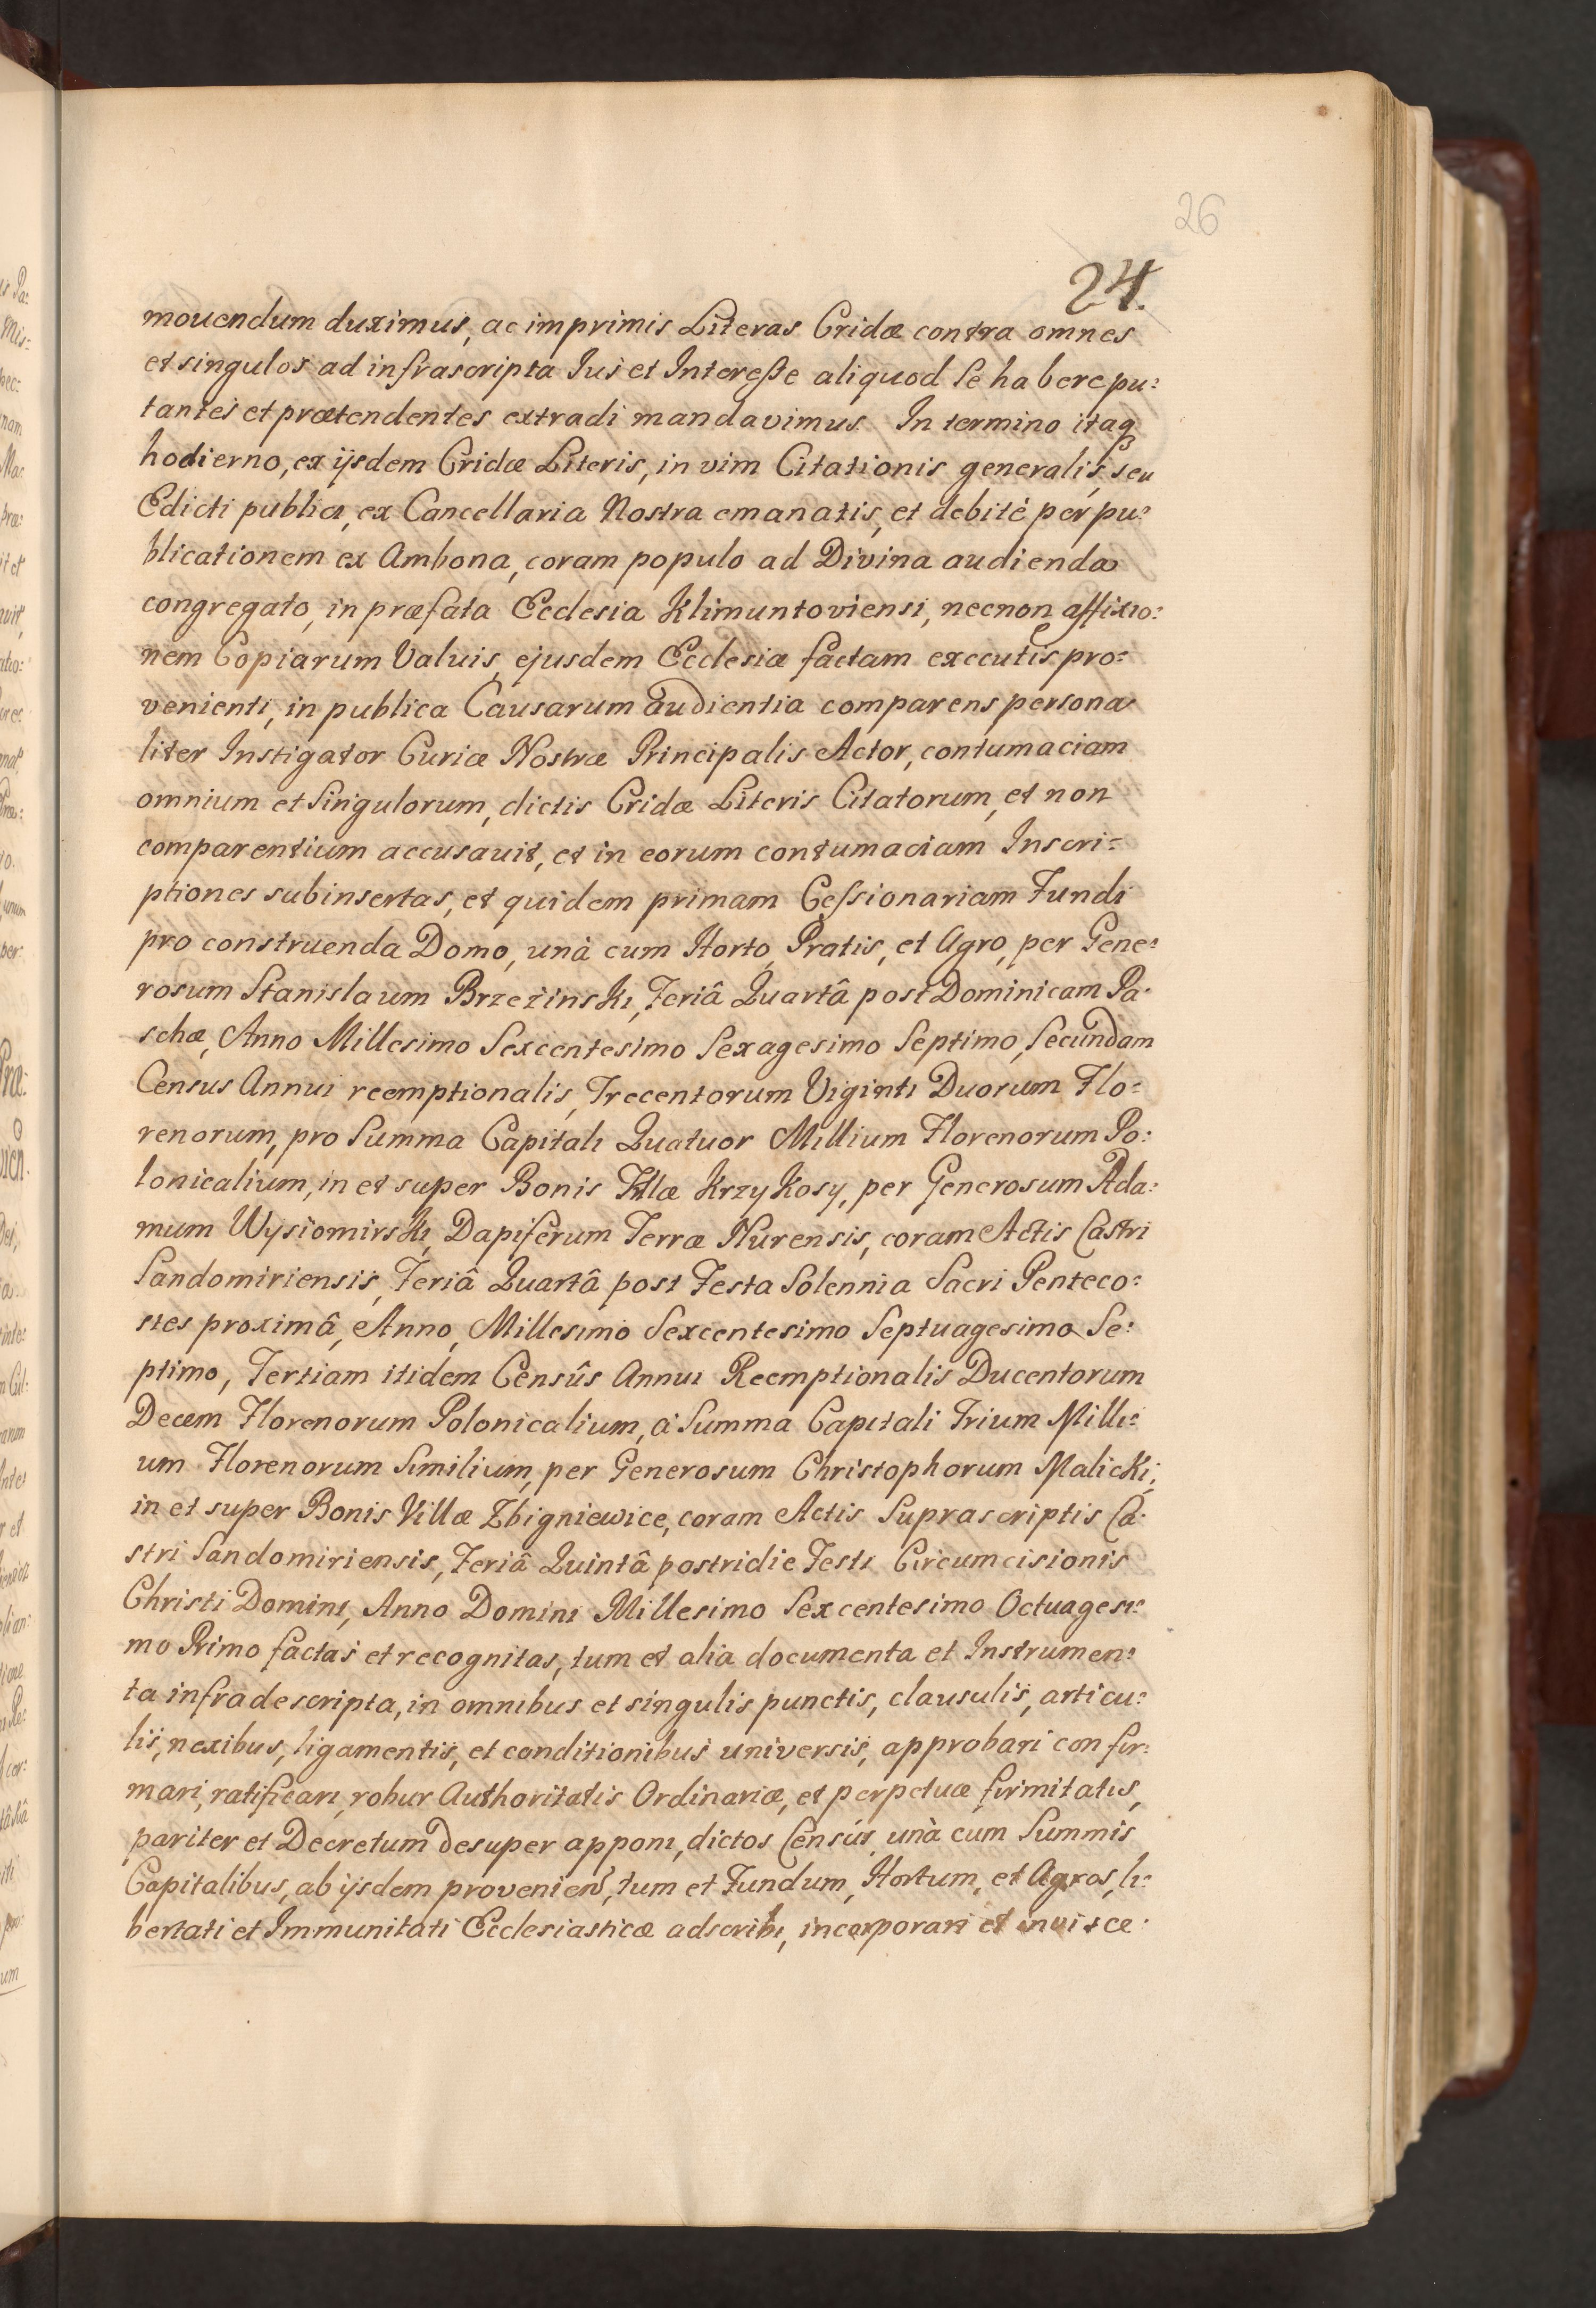 26
24.
movendum duximus, ac imprimis Literas Cridæ contra omnes
et singulos ad infrascripta Ius et Interesse aliquod Se habere pu:
tantes et prætendentes extradi mandavimus. In termino itaq
hodierno, ex ijsdem Cridæ Literis, in vim Citationis generalis, seu
Edicti publici, ex Cancellaria Nostra emanatis, et debitè per pu:
blicationem ex Ambona, coram populo ad Divina audienda
congregato, in præfata Ecclesia Klimuntoviensi, necnon affixio:
nem Copiarum Valuis, ejusdem Ecclesiæ factam executis pro:
venienti, in publica Causarum audientia comparens persona
liter Instigator Curiæ Nostræ Principalis Actor, contumaciam
omnium et Singulorum, dictis Cridæ Literis Citatorum, et non
comparentium accusauit, et in eorum contumaciam Inscri:
ptiones subinsertas, et quidem primam Cessionariam Fundi
pro construenda Domo, unà cum Horto, Pratis, et Agro, per Gene:
rosum Stanislaum Brzezinski, Feriâ Quartâ post Dominicam Pa:
schæ, Anno Millesimo Sexcentesimo Sexagesimo Septimo, Secundam
Census Annui reemptionalis, Trecentorum Viginti Duorum Flo:
renorum, pro Summa Capitali Quatuor Millium Florenorum Po:
lonicalium, in et super Bonis Villæ Krzykosy, per Generosum Ada:
mum Wysiomirski, Dapiferum Terræ Nurensis, coram Actis Castri
Sandomiriensis, Feriâ Quartâ post Festa Solennia Sacri Penteco:
stes proximâ, Anno, Millesimo Sexcentesimo Septuagesimo Se:
ptimo, Tertiam itidem Censûs Annui Reemptionalis Ducentorum
Decem Florenorum Polonicalium, a Summa Capitali Trium Milli:
um Florenorum Similium, per Generosum Christophorum Malicki,
in et super Bonis Villæ Zbigniewice, coram Actis Suprascriptis Ca:
stri Sandomiriensis, Feriâ Quintâ postridie Festi Circumcisionis
Christi Domini, Anno Domini Millesimo Sexcentesimo Octuagesi:
mo Primo factas et recognitas, tum et alia documenta et Instrumen:
ta infradescripta, in omnibus et singulis punctis, clausulis, articu:
lis, nexibus, ligamentis, et conditionibus universis, approbari confir:
mari, ratificari, robur Authoritatis Ordinariæ, et perpetuæ firmitatis,
pariter et Decretum desuper apponi, dictos Censús, unà cum Summis
Capitalibus, ab ijsdem provenien, tum et Fundum, Hortum, et Agros, li:
bertati et Immunitati Ecclesiasticæ adscribi, incorporari et invisce: